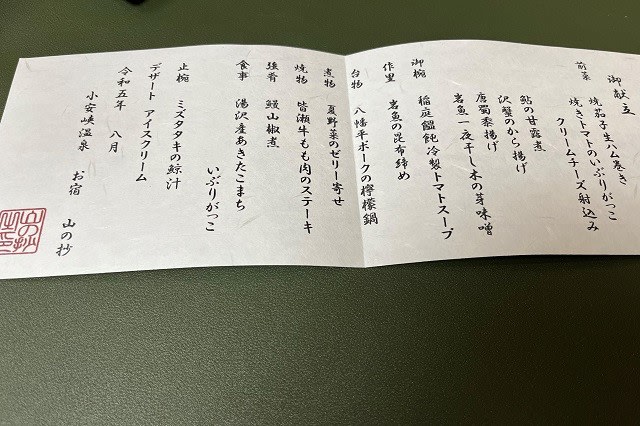 御献立
前菜 焼茄子生ハム巻き
焼きトマトのいぶりがっこ
クリームチーズ射込み
鮎の甘露煮
沢蟹のから揚げ
唐蜀黍揚げ
岩魚一夜干し木の芽味噌
御椀 稲庭饂飩冷製トマトスープ
作里 岩魚の昆布締め
台物 八幡平ポークの檸檬鍋
煮物 夏野菜のゼリー寄せ
焼物 皆瀬牛もも肉のステーキ
強肴 鰻山椒煮
食事 湯沢産あきたこまち
いぶりがっこ
止椀 ミズタタキの鯨汁
デザート アイスクリーム
令和五年 八月
小安峡温泉 お宿 山の抄